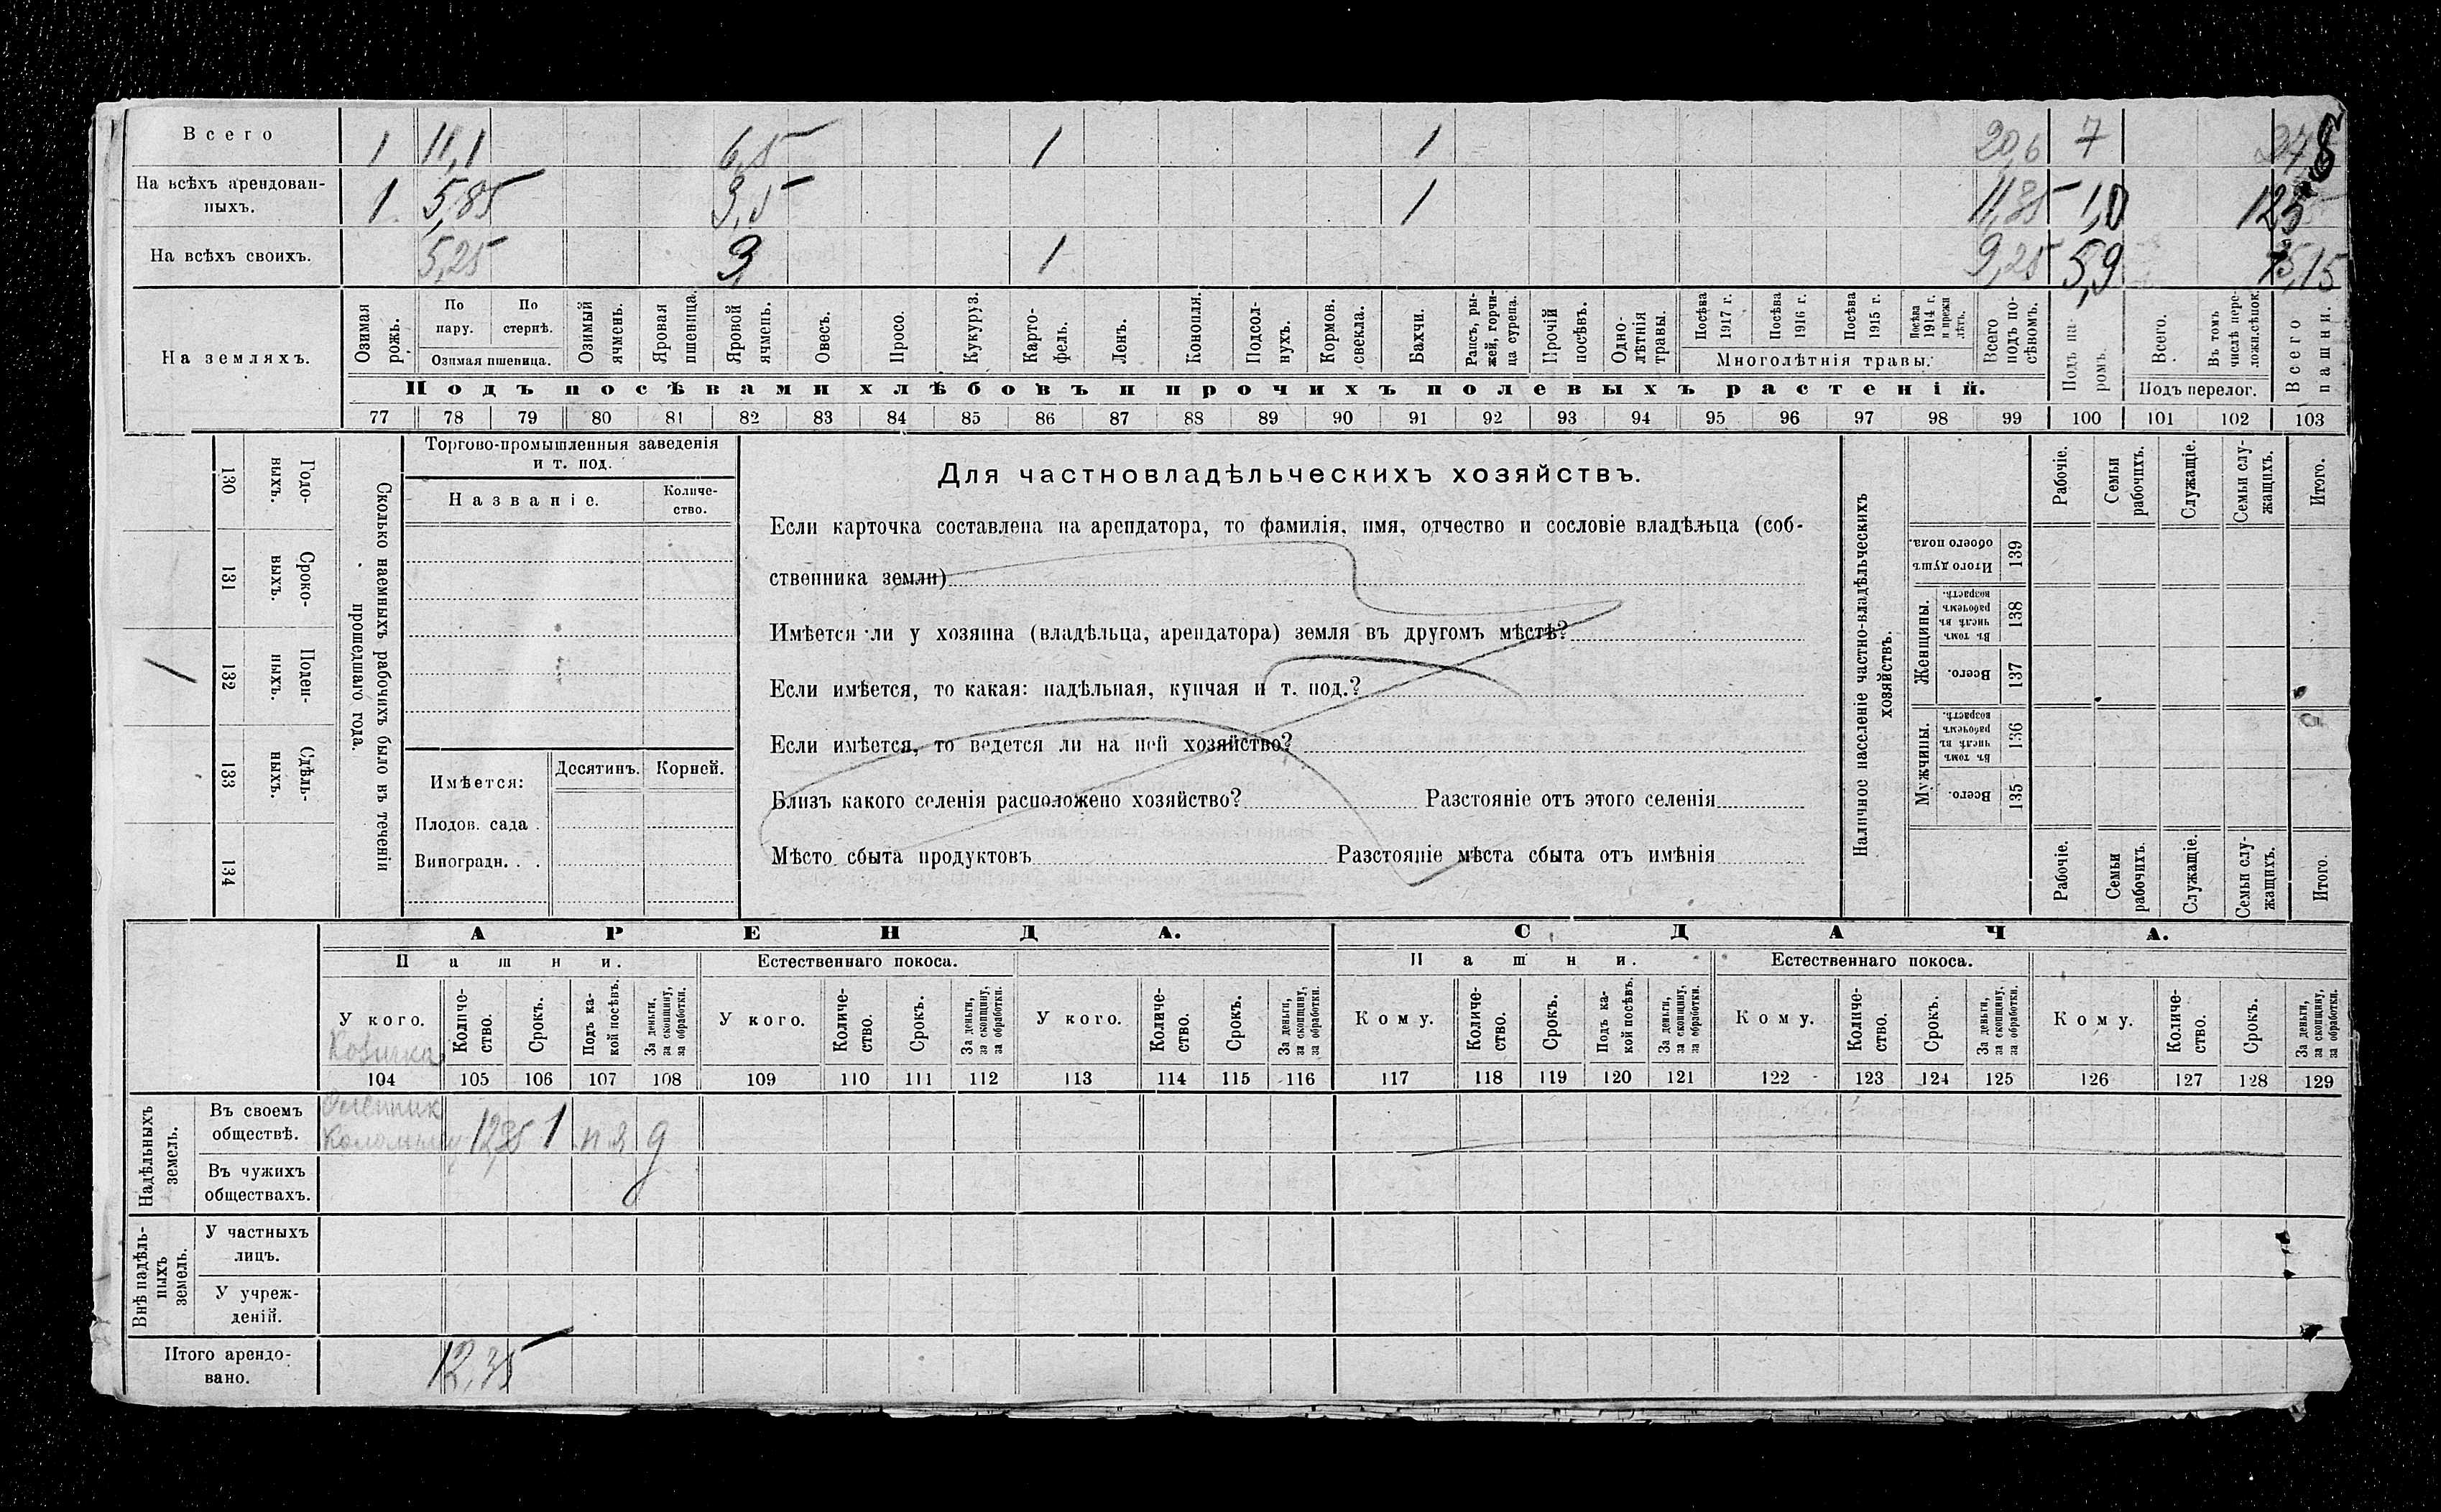 Всего 1 11,1 6,5 1 1 20,6 7
На всѣхъ арендован-
ныхъ. 1 5,85 3,5 1 11,85 1,0
На всѣхъ своихъ. 5,25 3 1 9,25 5,9
На земляхъ.
Озимая
рожь.
По
пару.
По
стернѣ.
Озимая пшеница.
Озимый
ячмень.
Яровая
пшеница.
Яровой
ячмень.
Овесъ.
Просо.
Кукуруз.
Карто-
фель.
Ленъ.
Конопля.
Подсол-
нухъ.
Кормов.
свекла.
Бахчи.
Рапсъ, ры-
жей, горчи-
ца сурепа.
Прочій
посѣвъ.
Одно-
лѣтнія
травы.
Посѣва
1917 г.
Посѣва
1916 г.
Посѣва
1915 г.
Посѣва
1914 г.
и прежн
лѣтъ.
Многолѣтнія травы.
Всего
подъ по-
сѣвомъ.
Подъ па-
ромъ.
Всего.
Въ томъ
числѣ пере-
ложн.сѣнок.
Подъ перелог.
Всего
пашни.
Подъ посѣвами хлѣбовъ и прочихъ полевыхъ растеній.
77 78 79 80 81 82 83 84 85 86 87 88 89 90 91 92 93 94 95 96 97 98 99 100 101 102 103
130
Годо-
выхъ.
131
Сроко-
выхъ.
132
Поден-
ныхъ.
133
Сдѣль-
ныхъ.
134
Сколько наемныхъ рабочихъ было въ теченіи
прошедшаго года.
Торгово-промышленныя заведенія
и т. под.
Названіе.
Количе-
ство.
Имѣется:
Десятинъ.
Корней.
Плодов. сада .
Виноградн. . .
Для частновладѣльческихъ хозяйствъ.
Если карточка составлена на арендатора, то фамилія, имя, отчество и сословіе владѣльца (соб-
ственника земли)
Имѣется ли у хозяина (владѣльца, арендатора) земля въ другомъ мѣстѣ?
Если имѣется, то какая: надѣльная, купчая и т. под.?
Если имѣется, то ведется ли на ней хозяйство?
Близъ какого селенія расположено хозяйство? Разстояніе отъ этого селенія
Мѣсто сбыта продуктовъ Разстояніе мѣста сбыта отъ имѣнія
Наличное населеніе частно-владѣльческихъ
хозяйствъ.
Рабочіе.
Семьи
рабочихъ.
Служащіе.
Семьи слу-
жащихъ.
Итого.
Итого душъ
обоего пола.
139
Женщины.
Въ томъ
числѣ въ
рабочемъ
возрастѣ.
138
Всего.
137
Мужчины.
Въ томъ
числѣ въ
рабочемъ
возрастѣ.
136
Всего.
135
Рабочіе.
Семьи
рабочихъ.
Служащіе.
Семьи слу-
жащихъ.
Итого.
АРЕНДА.
СДАЧА.
Пашни.
Естественнаго покоса.
Пашни.
Естественнаго покоса.
У кого.
Количе-
ство.
Срокъ.
Подъ ка-
кой посѣвъ.
За деньги,
за скопщину,
за обработки.
У кого.
Количе-
ство.
Срокъ.
За деньги,
за скопщину,
за обработки.
У кого.
Количе-
ство.
Срокъ.
За деньги,
за скопщину,
за обработки.
Кому.
Количе-
ство.
Срокъ.
Подъ ка-
кой посѣвъ.
За деньги,
за скопщину,
за обработки.
Кому.
Количе-
ство.
Срокъ.
За деньги,
за скопщину,
за обработки.
Кому.
Количе-
ство.
Срокъ.
За деньги,
за скопщину,
за обработки.
104 105 106 107 108 109 110 111 112 113 114 115 116 117 118 119 120 121 122 123 124 125 126 127 128 129
Надѣльныхъ
земель.
Въ своемъ
обществѣ.
12,35 1
Въ чужихъ
обществахъ.
Внѣ надѣль-
ныхъ
земель.
У частныхъ
лицъ.
У учреж-
деній.
Итого арендо-
вано.
12,35